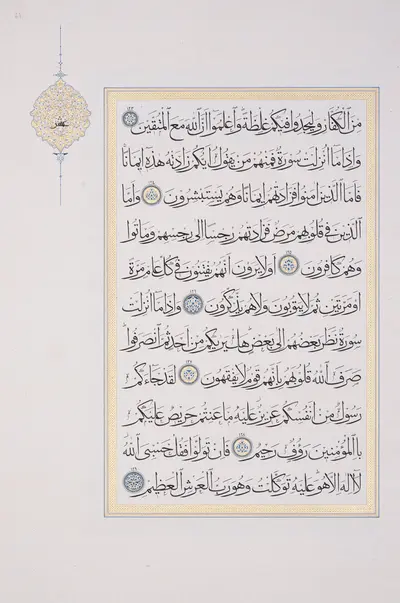 عشر
مِنَ الْكُفَّارِ وَلْيَجِدُوا فِيكُمْ غِلْظَةً وَاعْلَمُوا أَنَّ اللَّهَ مَعَ الْمُتَّقِينَ
وَإِذَا مَا أُنْزِلَتْ سُورَةٌ فَمِنْهُمْ مَنْ يَقُولُ أَيُّكُمْ زَادَتْهُ هَذِهِ إِيمَانًا
فَأَمَّا الَّذِينَ آمَنُوا فَزَادَتْهُمْ إِيمَانًا وَهُمْ يَسْتَبْشِرُونَ وَأَمَّا
الَّذِينَ فِي قُلُوبِهِمْ مَرَضٌ فَزَادَتْهُمْ رِجْسًا إِلَى رِجْسِهِمْ وَمَاتُوا
وَهُمْ كَافِرُونَ أَوَلَا يَرَوْنَ أَنَّهُمْ يُفْتَنُونَ فِي كُلِّ عَامٍ مَرَّةً
أَوْ مَرَّتَيْنِ ثُمَّ لَا يَتُوبُونَ وَلَا هُمْ يَذَّكَّرُونَ وَإِذَا مَا أُنْزِلَتْ
سُورَةٌ نَظَرَ بَعْضُهُمْ إِلَى بَعْضٍ هَلْ يَرَاكُمْ مِنْ أَحَدٍ ثُمَّ انْصَرَفُوا
صَرَفَ اللَّهُ قُلُوبَهُمْ بِأَنَّهُمْ قَوْمٌ لَا يَفْقَهُونَ لَقَدْ جَاءَكُمْ
رَسُولٌ مِنْ أَنْفُسِكُمْ عَزِيزٌ عَلَيْهِ مَا عَنِتُّمْ حَرِيصٌ عَلَيْكُمْ
بِالْمُؤْمِنِينَ رَؤُوفٌ رَحِيمٌ فَإِنْ تَوَلَّوْا فَقُلْ حَسْبِيَ اللَّهُ
لَا إِلَهَ إِلَّا هُوَ عَلَيْهِ تَوَكَّلْتُ وَهُوَ رَبُّ الْعَرْشِ الْعَظِيمِ